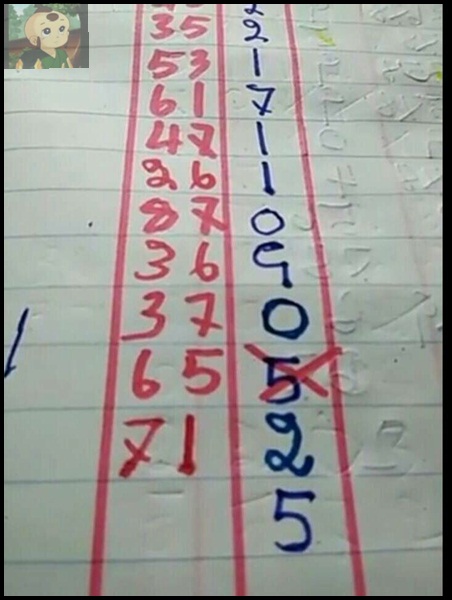 35 2
53 1
61 7
47 1
26 1
87 0
36 9
37 0
65 5
71 2
5